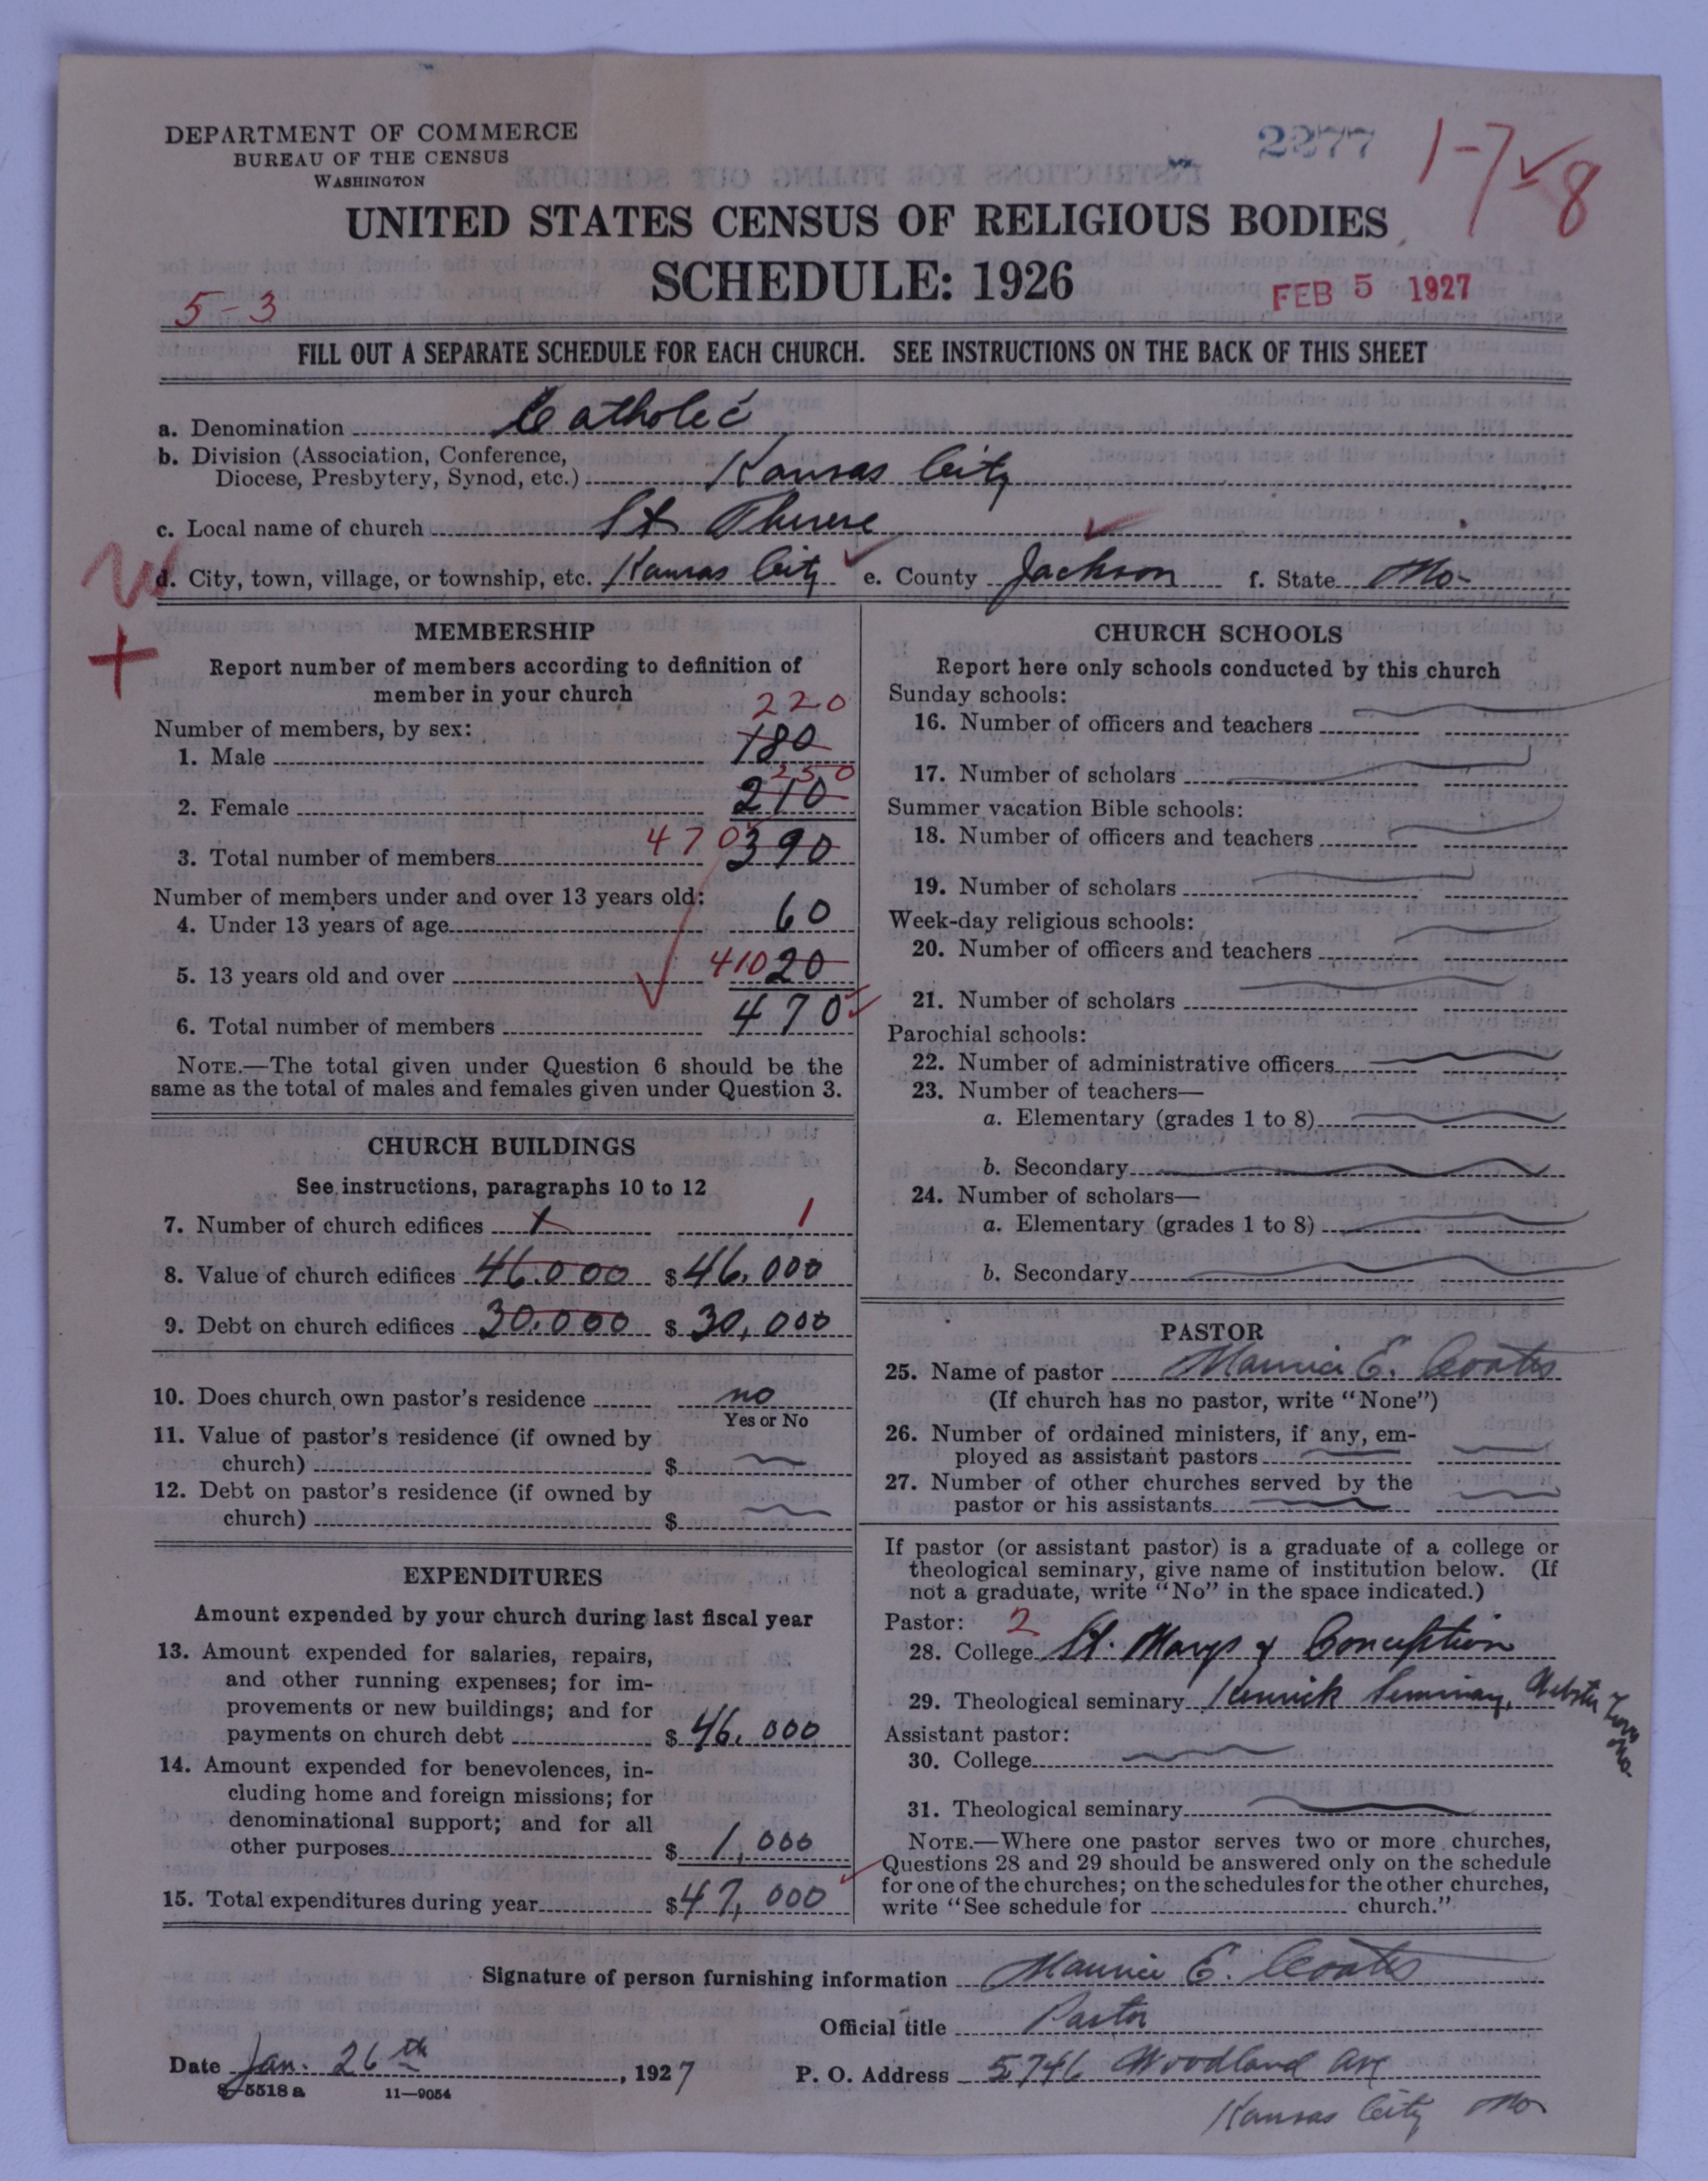 DEPARTMENT OF COMMERCE
BUREAU OF THE CENSUS
WASHINGTON
2277
1-7-8
UNITED STATES CENSUS OF RELIGIOUS BODIES
SCHEDULE: 1926
5-3
FEB 5 1927
FILL OUT A SEPARATE SCHEDULE FOR EACH CHURCH. SEE INSTRUCTIONS ON THE BACK OF THIS SHEET
a. Denomination Catholic
b. Division (Association, Conference,
Diocese, Presbytery, Synod, etc.) Kansas City
c. Local name of church St Therese
d. City, town, village, or township, etc. Kansas City e. County Jackson f. State Mo-
MEMBERSHIP
Report number of members according to definition of
member in your church
220
Number of members, by sex:
1. Male 180
250
2. Female 210
3. Total number of members 470 390
Number of members under and over 13 years old:
4. Under 13 years of age 60
5. 13 years old and over 410 20
6. Total number of members 470
NOTE.—The total given under Question 6 should be the
same as the total of males and females given under Question 3.
CHURCH BUILDINGS
See instructions, paragraphs 10 to 12
7. Number of church edifices 1 1
8. Value of church edifices 46.000 $46,000
9. Debt on church edifices 30.000 $30,000
10. Does church own pastor's residence no
Yes or No
11. Value of pastor's residence (if owned by
church) $
12. Debt on pastor's residence (if owned by
church) $
EXPENDITURES
Amount expended by your church during last fiscal year
13. Amount expended for salaries, repairs,
and other running expenses; for im-
provements or new buildings; and for
payments on church debt $46,000
14. Amount expended for benevolences, in-
cluding home and foreign missions; for
denominational support; and for all
other purposes $1,000
15. Total expenditures during year $47,000
CHURCH SCHOOLS
Report here only schools conducted by this church
Sunday schools:
16. Number of officers and teachers
17. Number of scholars
Summer vacation Bible schools:
18. Number of officers and teachers
19. Number of scholars
Week-day religious schools:
20. Number of officers and teachers
21. Number of scholars
Parochial schools:
22. Number of administrative officers
23. Number of teachers—
a. Elementary (grades 1 to 8)
b. Secondary
24. Number of scholars—
a. Elementary (grades 1 to 8)
b. Secondary
PASTOR
25. Name of pastor Maurice E. Coates
(If church has no pastor, write "None")
26. Number of ordained ministers, if any, em-
ployed as assistant pastors
27. Number of other churches served by the
pastor or his assistants
If pastor (or assistant pastor) is a graduate of a college or
theological seminary, give name of institution below. (If
not a graduate, write "No" in the space indicated.)
Pastor: 2
28. College St. Marys & Conception
29. Theological seminary Kenrick Seminary, Webster Mo.
Assistant pastor:
30. College
31. Theological seminary
NOTE.—Where one pastor serves two or more churches,
Questions 28 and 29 should be answered only on the schedule
for one of the churches; on the schedules for the other churches,
write "See schedule for church."
Signature of person furnishing information Maurice E. Coates
Official title Pastor
Date Jan. 26th, 1927 P. O. Address 5746 Woodland Ave
8-5518 a 11-9054
Kansas City Mo